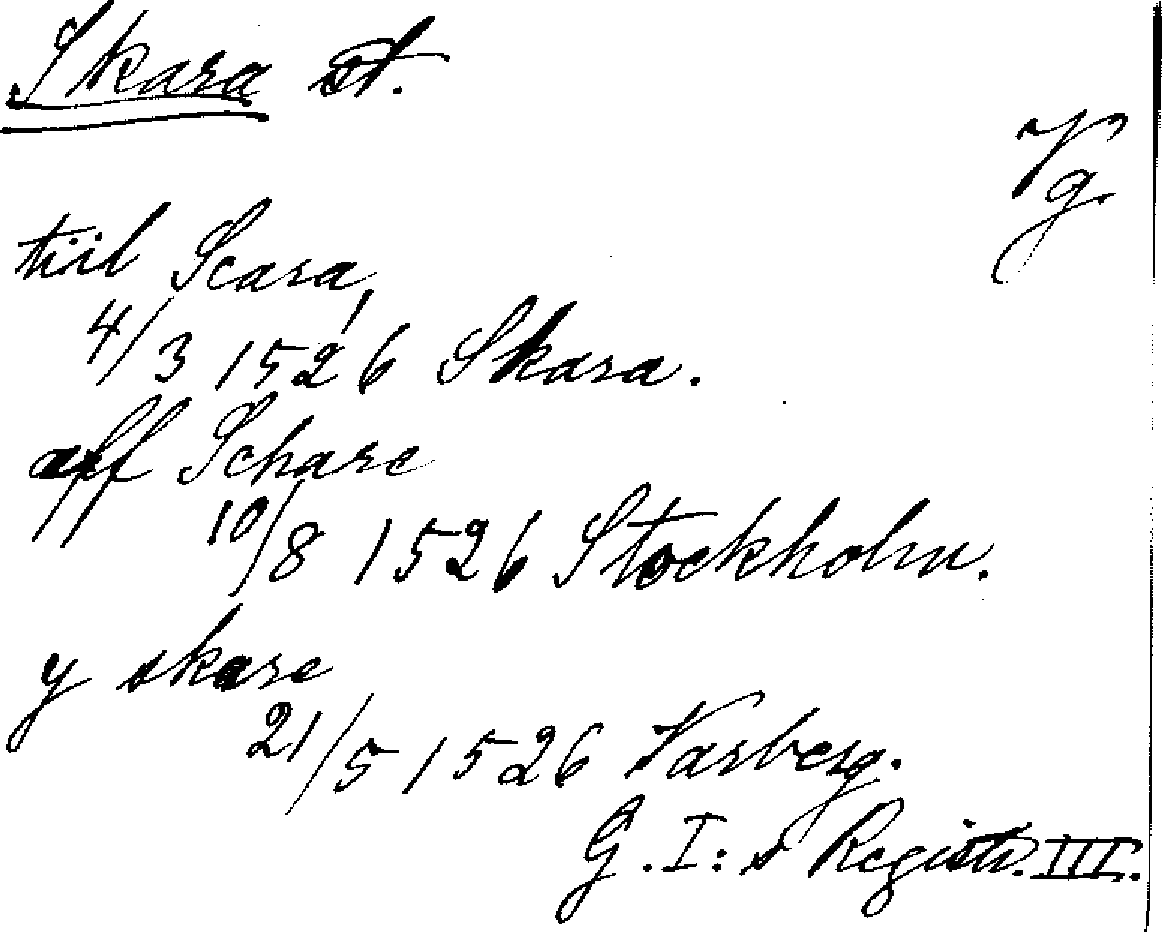 Skara st.
Vg
tiil Scara,
4/3 1526 Skara.
aff Schare
10/8 1526 Stockholm.
y skare
21/5 1526 Varberg.
G. I: s Registr. III.